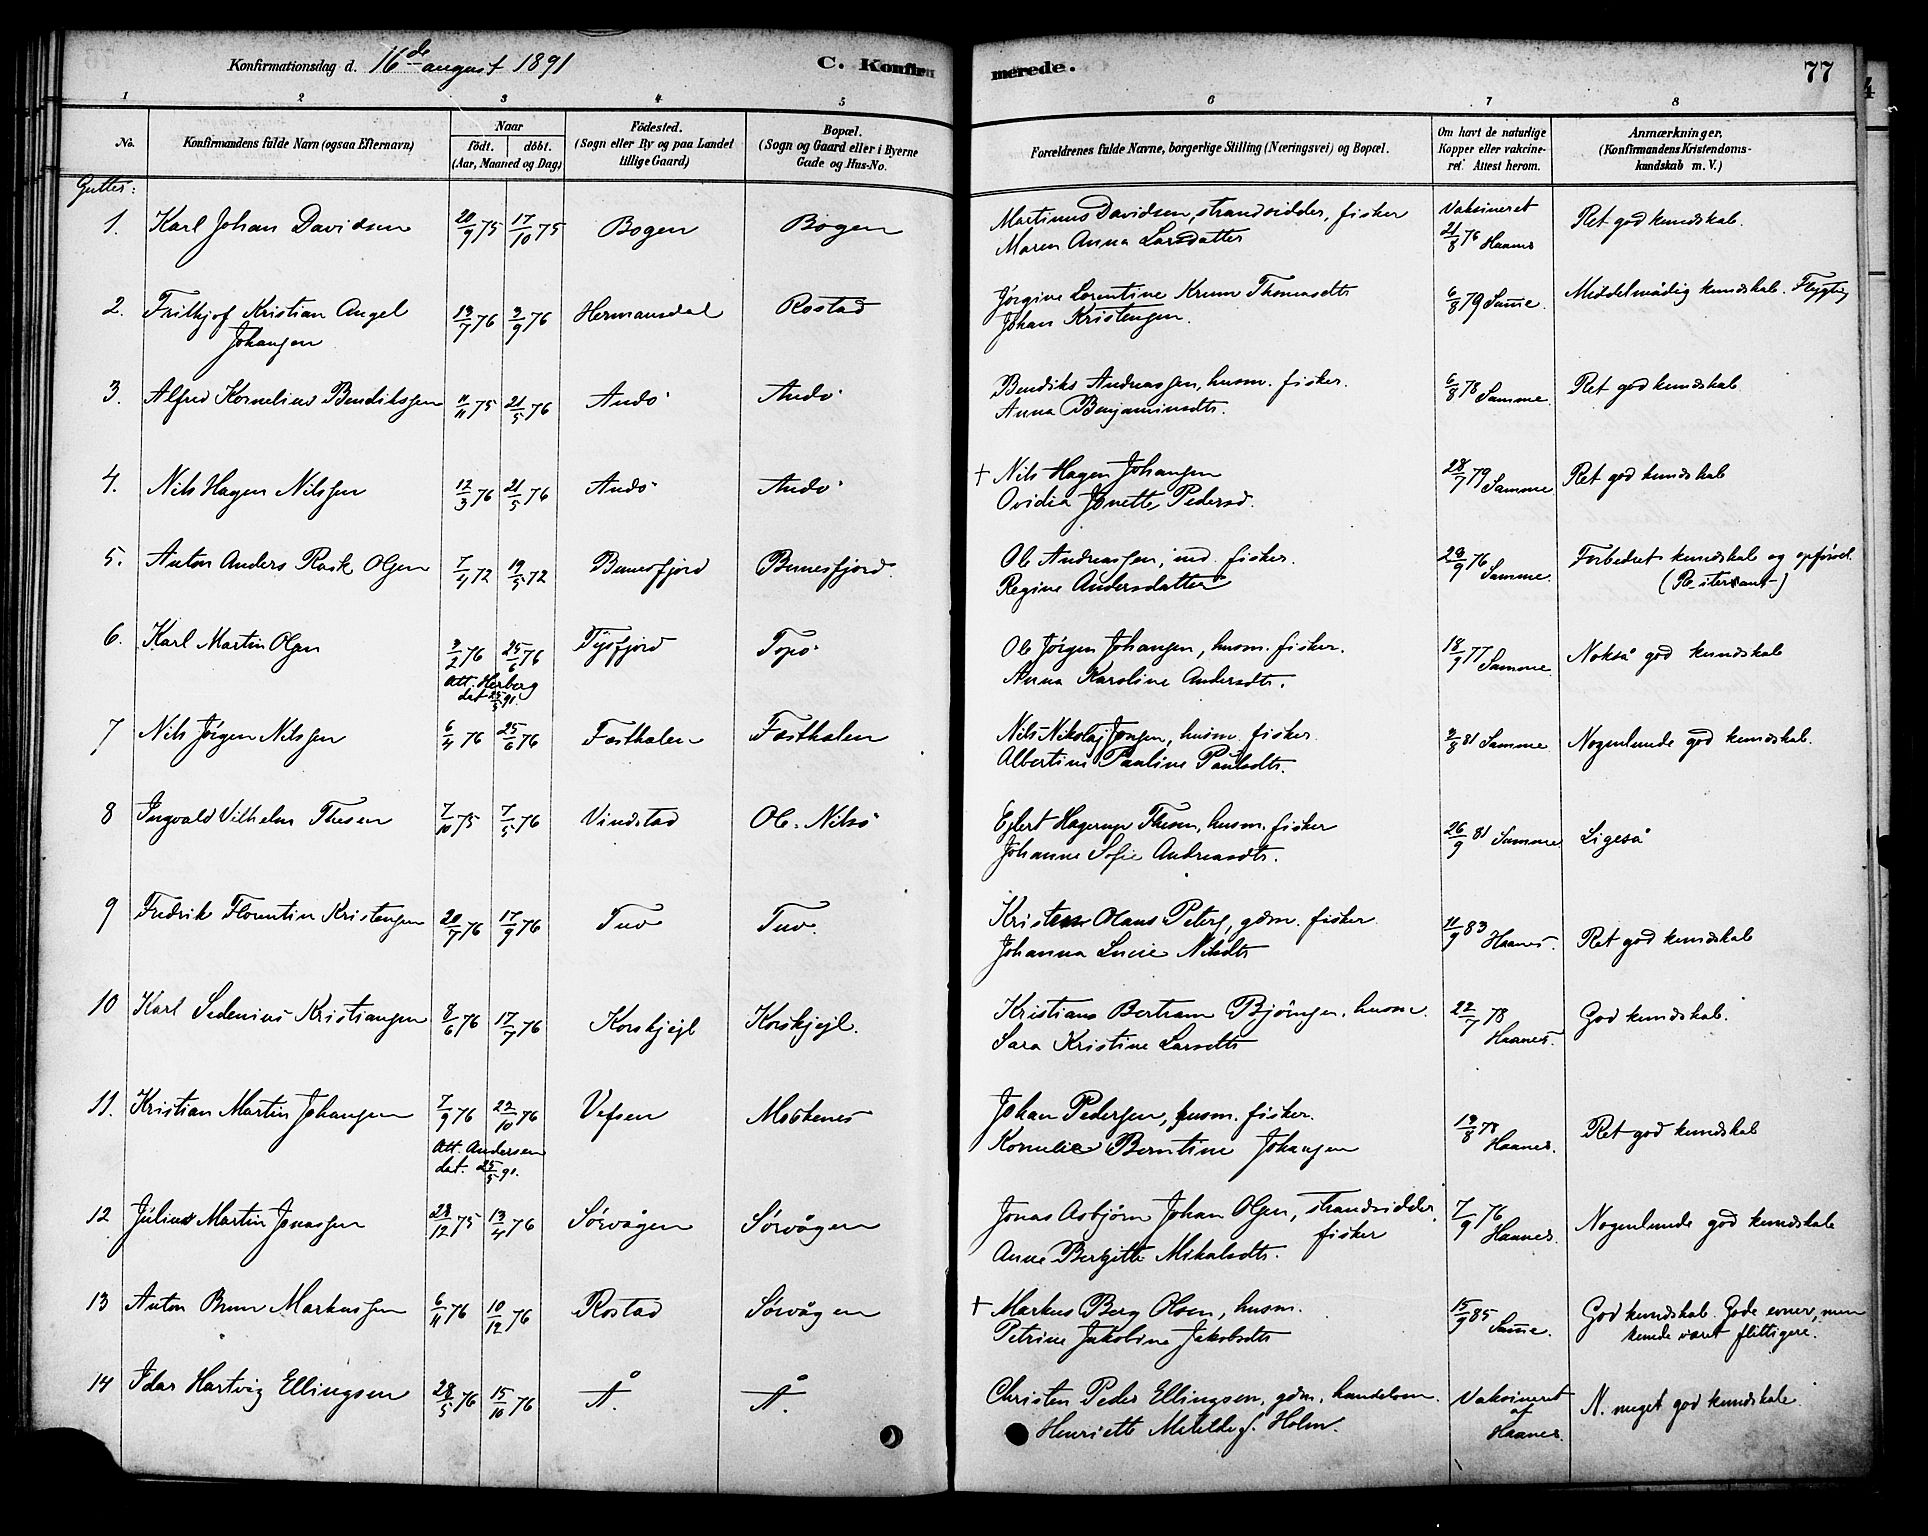 Konfirmationsdag d. 16de august 1891
C. Konfirmerede.
77
1 2 3 4 5 6 7 8
No.
Konfirmandens fulde Navn (ogsaa Efternavn)
Naar
født. døbt.
(Aar, Maaned og Dag)
Fødested.
(Sogn eller By og paa Landet
tillige Gaard)
Bopæl.
(Sogn og Gaard eller i Byerne
Gade og Hus-No.
Forældrenes fulde Navne, borgerlige Stilling (Næringsvei) og Bopæl.
Om havt de naturlige
Kopper eller vakcine-
ret. Attest herom.
Anmærkninger.
(Konfirmandens Kristendoms-
kundskab m. V.)
Gutter:
1. Karl Johan Davidsen 20/9 75 17/10 75 Bogen Bogen Martinus Davidsen, strandsidder, fisker Vaksineret Ret god kundskab.
Maren Anna Larsdatter 21/8 76 Haanes
2. Frithjof Kristian Angel 13/7 76 3/9 76 Hermansdal Rostad Jørgine Lorentine Krum Thomasdtr 6/8 79 Samme. Middelmådig kundskab. Flygtig
Johansen Johan Kristensen.
3. Alfred Kornelius Bendiksen 11/11 75 21/5 76 Andø Andø Bendiks Andreassen, husm. fisker. 6/8 78 Samme. Ret god kundskab
Anna Benjaminsdtr.
4. Nils Hagen Nilssen 12/3 76 21/5 76 Andø Andø † Nils Hagen Johansen 28/7 79 Samme Ret god kundskab
Ovidia Jonette Pedersd.
5. Anton Anders Rask Olsen 7/4 72 19/5 72 Bunesfjord Bunesfjord. Ole Andreassen, ind. fisker. 29/9 76 Samme. Forbedret kundskab og opførsel.
Regine Andersdatter (Resterant)
6. Karl Martin Olsen 3/2 76 25/6 76 Tysfjord Topø Ole Jørgen Johansen, husm. fisker. 18/9 77 Samme Nokså god kundskab
Att. Herberg Anna Karoline Andersdtr.
dat 25/5 91.
7 Nils Jørgen Nilssen 6/4 76 25/6 76 Fasthalen Fasthalen Nils Nikolaj Jensen, husm. fisker 3/8 81 Samme Nogenlunde god kundskab.
Albertine Pauline Paulsdtr.
8 Ingvald Vilhelm Thesen 7/10 75 7/5 76 Vindstad Ol. Nilsø Ejlert Hagerup Thesen, husm. fisker 26/9 81 Samme Ligeså
Johanne Sofie Andreasdtr.
9 Fredrik Florentin Kristensen 20/7 76 17/9 76 Tuv Tuv. Kristen Olaus Peters, gdm. fisker 11/9 83 Haanes. Ret god kundskab
Johanna Lucie Nilsdtr
10 Karl Sedenius Kristiansen 8/6 76 17/7 76 Korshjejl Korshjejl. Kristians Bertram Bjørnsen, husm. 22/7 78 Haanes. God kundskab.
Sara Kristine Larsdtr
11. Kristian Martin Johansen 7/9 76 22/10 76 Vefsen Moskenes Johan Pedersen, husm. fisker. 19/8 78 Haanes. Ret god kundskab
Att. Andersen Kornelie Berntine Johansen
dat. 25/5 91.
12 Julius Martin Jonassen 28/12 75 13/4 76 Sørvågen Sørvågen Jonas Asbjørn Johan Olsen, strandsidder, 7/9 76 Haanes. Nogenlunde god kundskab
fisker
Anne Bergitte Mikalsdtr.
13 Anton Brun Markussen 6/11 76 10/12 76 Rostad Sørvågen † Markus Berg Olsen, husm. 15/9 85 Samme. God kundskab. Gode evner, men
Petrine Jakobine Jakobsdtr kunde været flittigere.
14 Idar Hartvig Ellingsen 28/5 76 15/10 76 Å. Å. Christen Peder Ellingsen, gdm. handelsm. Vaksineret N. meget god kundskab.
Henriette Metilde f. Holm. af
Haanes.